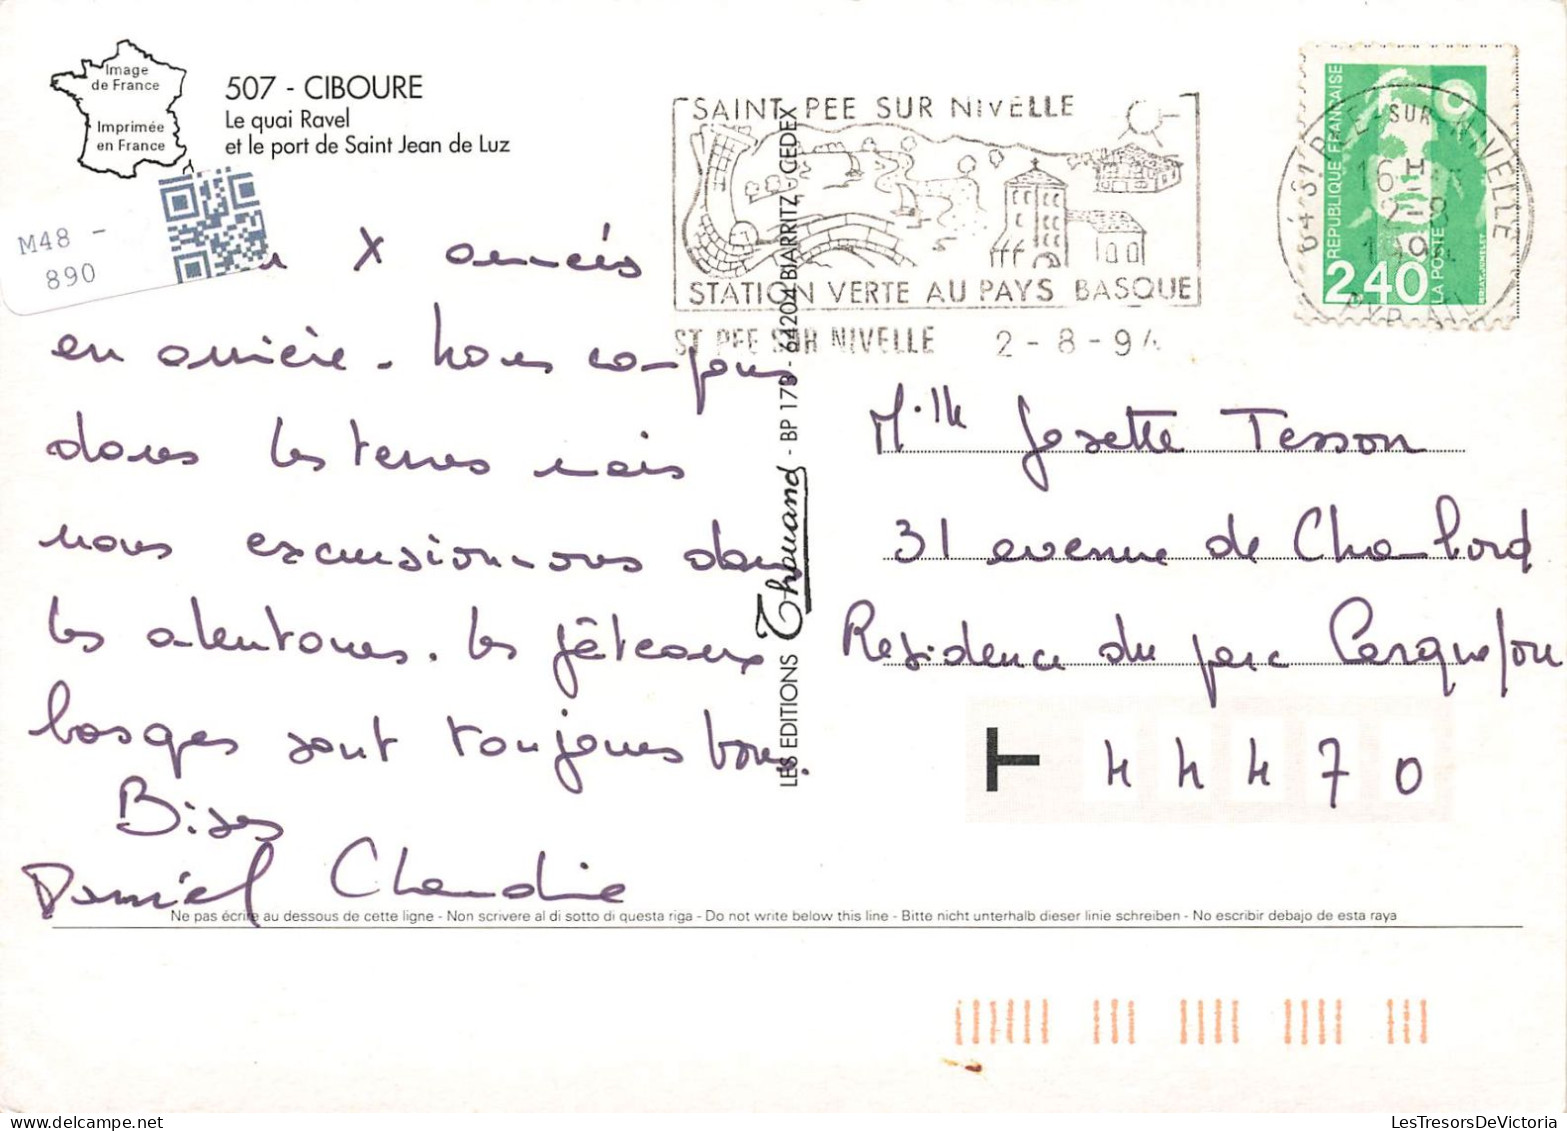 Image
de France
Imprimée
en France
507 - CIBOURE
Le quai Ravel
et le port de Saint Jean de Luz
M48 -
890
SAINT PEE SUR NIVELLE
STATION VERTE AU PAYS BASQUE
ST PEE SUR NIVELLE 2-8-94
64 ST PEE-SUR-NIVELLE
16H
2-8
1994
REPUBLIQUE FRANÇAISE
2,40
LA POSTE
X années
en arrière. Nous campons
dans les terres mais
nous excursionnons dans
les alentours. Les gâteaux
basques sont toujours bons.
Bises
Daniel Claudie
LES EDITIONS Thouand - BP 173 - 64204 BIARRITZ - CEDEX
Mlle Josette Tesson
31 avenue de Chambord
Residence du parc Carquefou
T 44470
Ne pas écrire au dessous de cette ligne - Non scrivere al di sotto di questa riga - Do not write below this line - Bitte nicht unterhalb dieser linie schreiben - No escribir debajo de esta raya
LesTresorsDeVictoria